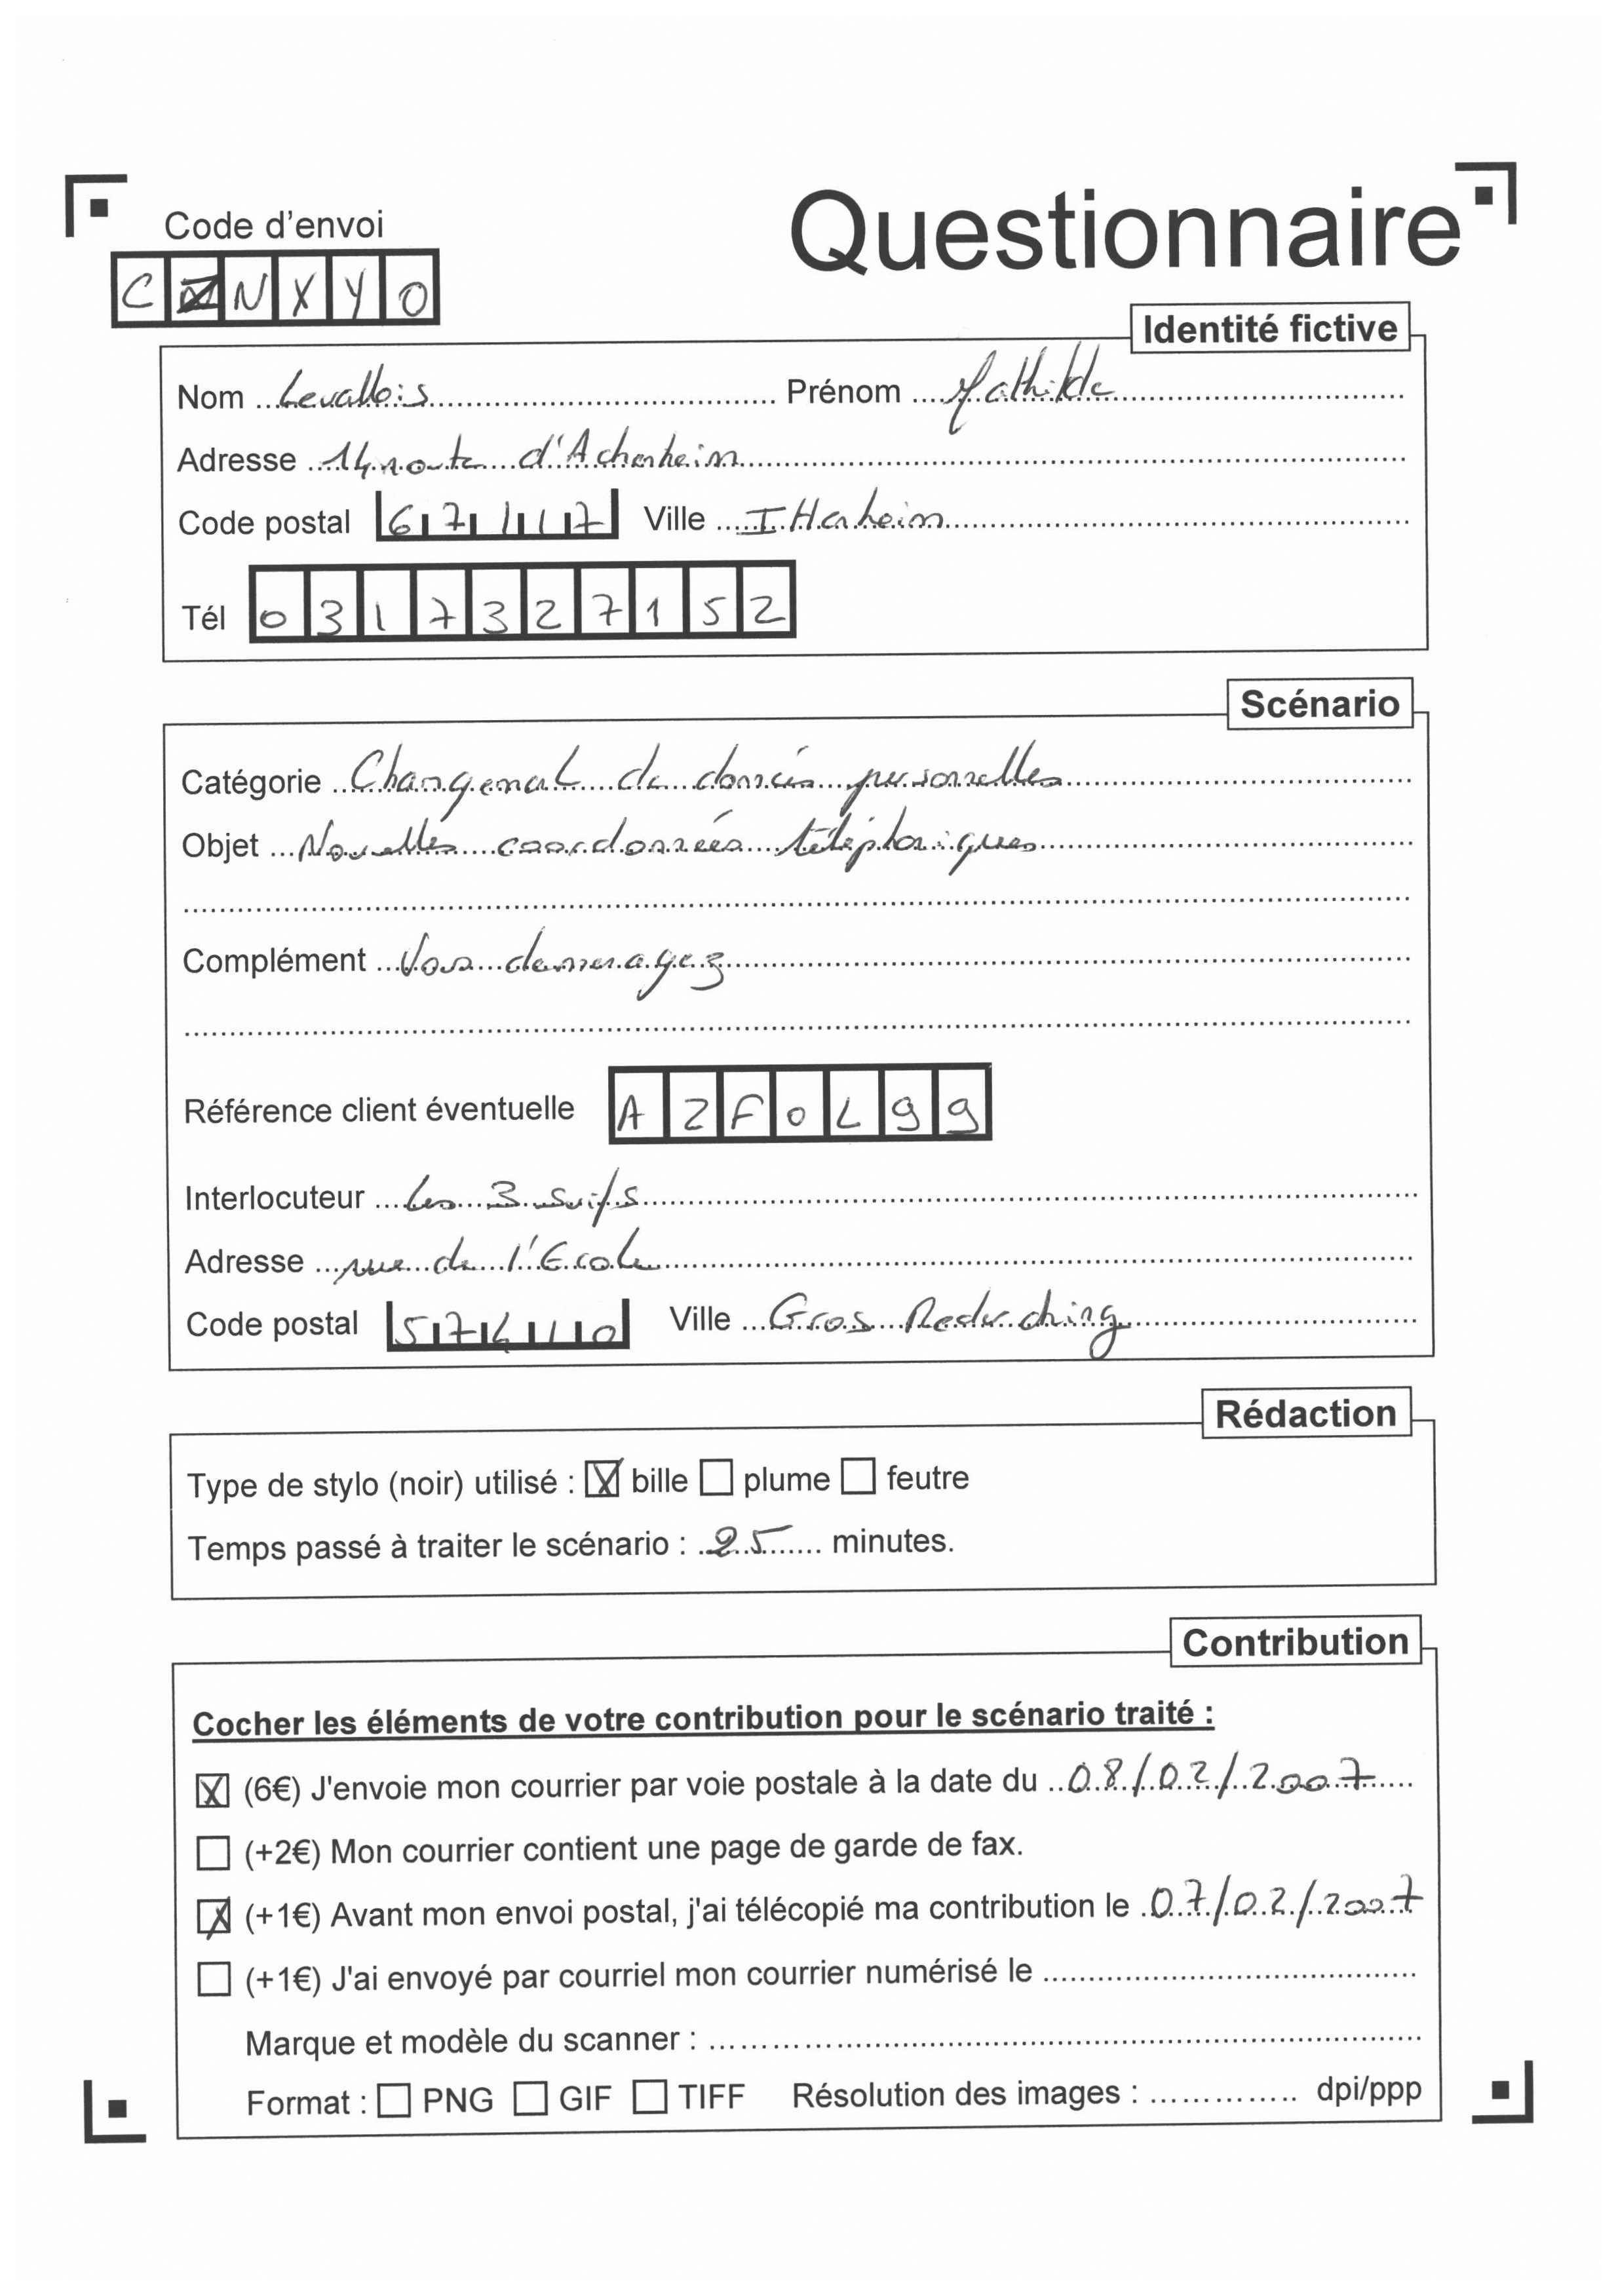 Questionnaire
Code d'envoi
C N X Y O
Identité fictive
Nom Levallois Prénom Mathilde
Adresse 14 route d'Achenheim
Code postal 67117 Ville Ittenheim
Tél 0317327152
Scénario
Catégorie Changement de donnés personnelles
Objet Nouvelles coordonnées téléphoniques
Complément Vous demenagez
Référence client éventuelle AZFOL99
Interlocuteur Les 3 suifs
Adresse rue de l'Ecole
Code postal 57410 Ville Gros Rederching
Rédaction
Type de stylo (noir) utilisé : ☒ bille ☐ plume ☐ feutre
Temps passé à traiter le scénario : 25 minutes.
Contribution
Cocher les éléments de votre contribution pour le scénario traité :
☒ (6€) J'envoie mon courrier par voie postale à la date du 08/02/2007
☐ (+2€) Mon courrier contient une page de garde de fax.
☒ (+1€) Avant mon envoi postal, j'ai télécopié ma contribution le 07/02/2007
☐ (+1€) J'ai envoyé par courriel mon courrier numérisé le
Marque et modèle du scanner :
Format : ☐ PNG ☐ GIF ☐ TIFF Résolution des images : dpi/ppp